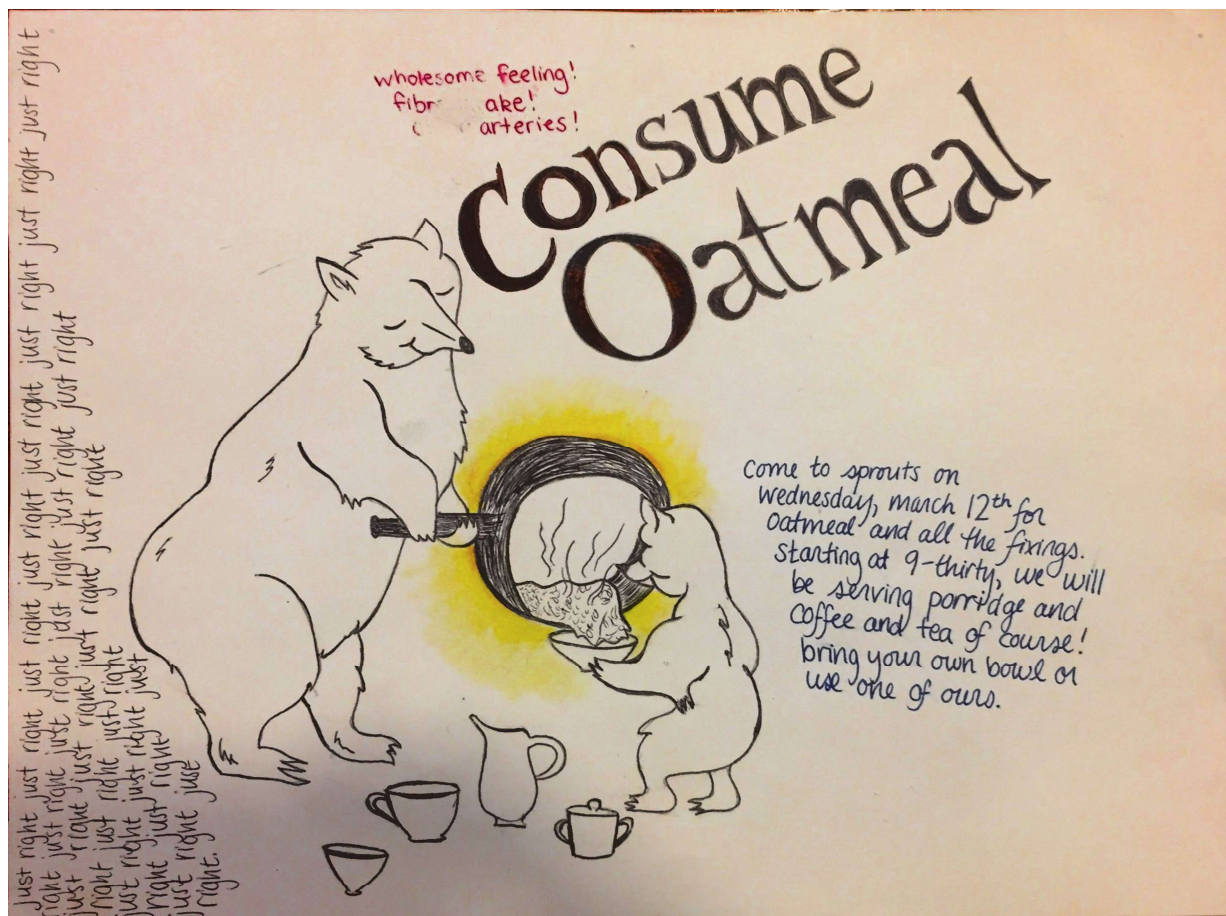 wholesome feeling!
fibr ake!
arteries!
Consume
Oatmeal
come to sprouts on
wednesday, march 12th for
oatmeal and all the fixings.
starting at 9-thirty, we will
be serving porridge and
coffee and tea of course!
bring your own bowl or
use one of ours.
just right just right just right just right just right just right just right just right just right
right just right just right just right just right just right just right
just right just right just right just right just right
right just right just right
just right just right just
right just right
just right just
right.